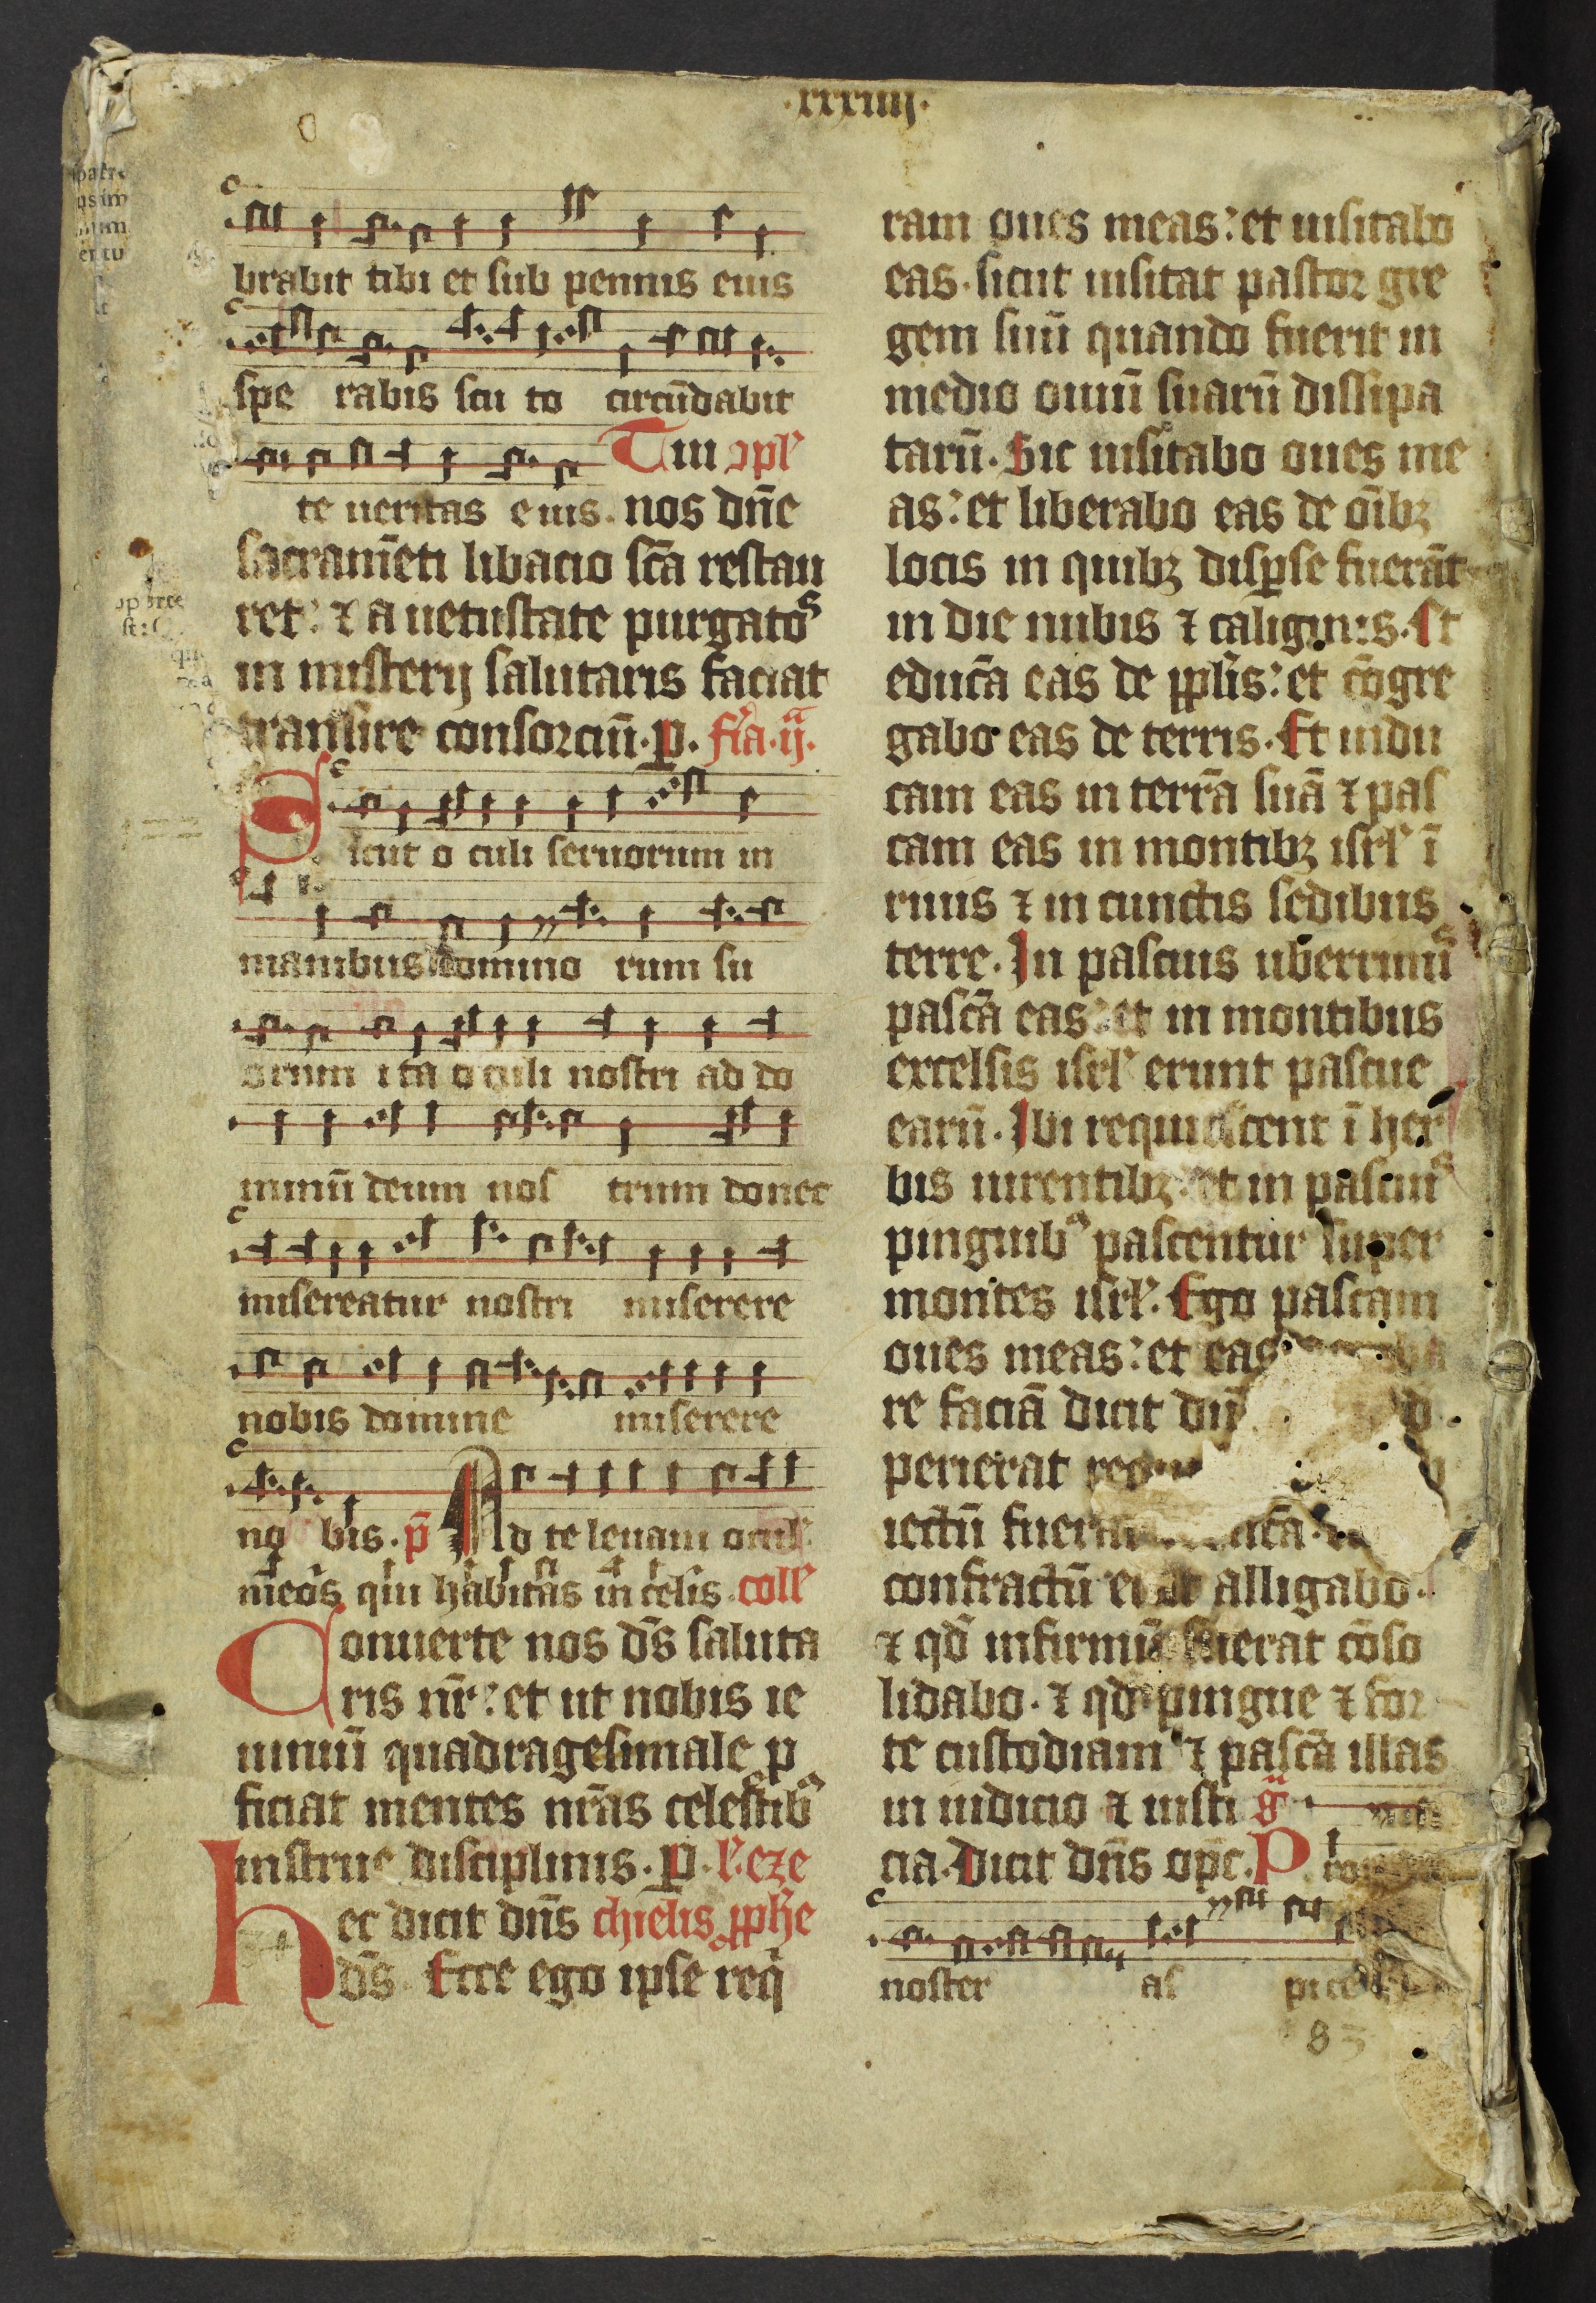 ·xxxiiij·
brabit tibi et sub pennis eius
spe rabis scu to circūdabit
Tui ꝯpl'
te ueritas eius. nos dn̄e
sacramēti libacio sc̄a restau
ret: ⁊ a uetustate purgatos
in misterij salutaris faciat
transire consorciū. p. fr̄a. ij.
Sicut o culi seruorum in
manibus domino rum su
orum ita oculi nostri ad do
minū deum nos trum donec
misereatur nostri miserere
nobis domine miserere
no bis. p̄ Ad te leuaui ocul'
meos qui habitas in celis. coll'
Conuerte nos ds̄ saluta
ris nr̄: et ut nobis ie
iuniū quadragesimale ꝓ
ficiat mentes nr̄as celestibꝰ
instrue disciplinis. p. l'. eze
hec dicit dn̄s chielis ꝓphe
ds̄. Ecce ego ipse req̄
ram oues meas: et uisitabo
eas. sicut uisitat pastor gre
gem suū quando fuerit in
medio ouiū suarū dissipa
tarū. Sic uisitabo oues me
as: et liberabo eas de oībꝫ
locis in quibꝫ disꝑse fuerāt
in die nubis ⁊ caliginis. Et
educā eas de ppl̄is: et cōgre
gabo eas de terris. Et indu
cam eas in terrā suā ⁊ pas
cam eas in montibꝫ isrl' ī
riuis ⁊ in cunctis sedibus
terre. In pascuis uberrimis
pascā eas: et in montibus
excelsis isrl' erunt pascue
earū. Ibi requiescent ī her
bis uirentibꝫ: et in pascuis
pinguibꝰ pascentur super
montes isrl'. Ego pascam
oues meas: et eas
re faciā dicit dn̄
perierat
iectū
confractū erat alligabo.
⁊ qd̄ infirmū fuerat cōso
lidabo. ⁊ qd̄ pingue ⁊ for
te custodiam ⁊ pascā illas
in iudicio ⁊ iusti g̃
cia. Dicit dn̄s opc̄. P
noster as pice
83